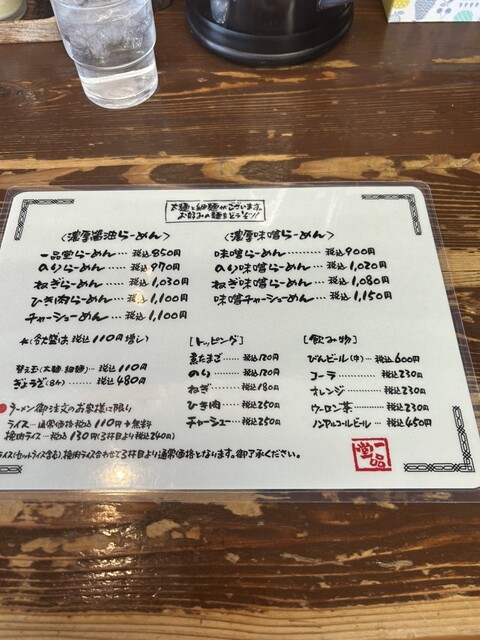 太麺と細麺がございます。
お好みの麺をどうぞ!!
〈濃厚醤油らーめん〉
一品堂らーめん…税込850円
のりらーめん……税込970円
ねぎらーめん……税込1,030円
ひき肉らーめん…税込1,100円
チャーシューめん…税込1,100円
〈濃厚味噌らーめん〉
味噌らーめん………税込900円
のり味噌らーめん…税込1,020円
ねぎ味噌らーめん…税込1,080円
味噌チャーシューめん…税込1,150円
税込110円増し)
替え玉(太麺・細麺)…税込110円
ぎょうざ(8ヶ)……税込480円
[トッピング]
煮たまご……税込120円
のり…………税込120円
ねぎ…………税込180円
ひき肉………税込250円
チャーシュー…税込250円
[飲み物]
びんビール(中)…税込600円
コーラ…………税込230円
オレンジ………税込230円
ウーロン茶……税込230円
ノンアルコールビール…税込450円
ラーメン御注文のお客様に限り
ライス…通常価格税込110円→無料
挽肉ライス…税込130円(3杯目より税込240円)
ライス(セットライス含む)、挽肉ライス合わせて3杯目より通常価格となります。御了承ください。
一品堂